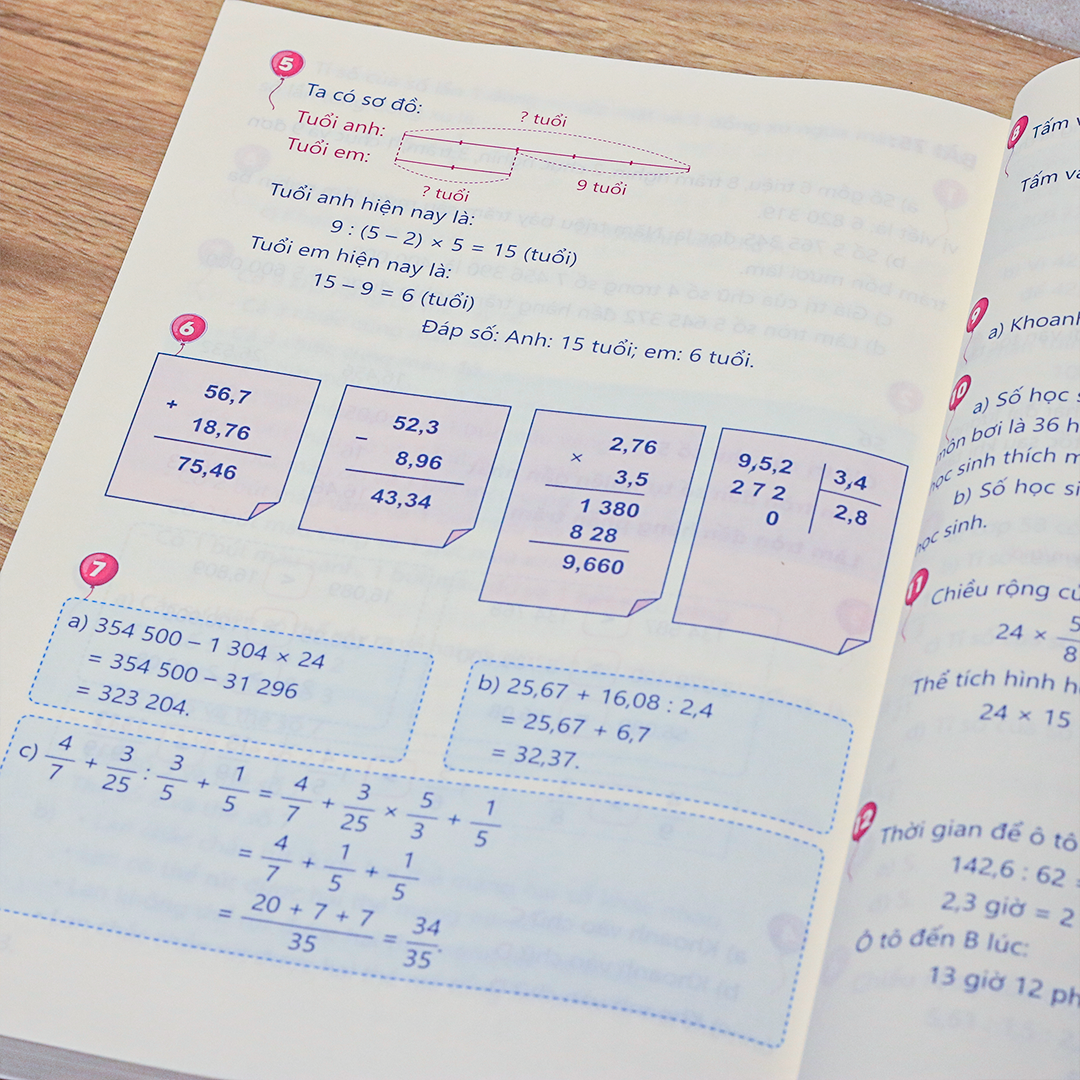 5
Ta có sơ đồ:
? tuổi
Tuổi anh:
Tuổi em:
9 tuổi
? tuổi
Tuổi anh hiện nay là:
9 : (5 – 2) × 5 = 15 (tuổi)
Tuổi em hiện nay là:
15 – 9 = 6 (tuổi)
Đáp số: Anh: 15 tuổi; em: 6 tuổi.
6
56,7
+
18,76
75,46
52,3
–
8,96
43,34
2,76
×
3,5
1 380
8 28
9,660
9,5,2 3,4
2 7 2 2,8
0
7
a) 354 500 – 1 304 × 24
= 354 500 – 31 296
= 323 204.
b) 25,67 + 16,08 : 2,4
= 25,67 + 6,7
= 32,37.
c) 4/7 + 3/25 : 3/5 + 1/5 = 4/7 + 3/25 × 5/3 + 1/5
= 4/7 + 1/5 + 1/5
= 20 + 7 + 7/35 = 34/35.
8
Tấm
Tấm
9
a) Khoanh
10
a) Số học
môn bơi là 36
học sinh thích
b) Số học
học sinh.
11
Chiều rộng
24 × 5/8
Thể tích hình
24 × 15
12
Thời gian để ô tô
142,6 : 62
2,3 giờ = 2
Ô tô đến B lúc:
13 giờ 12